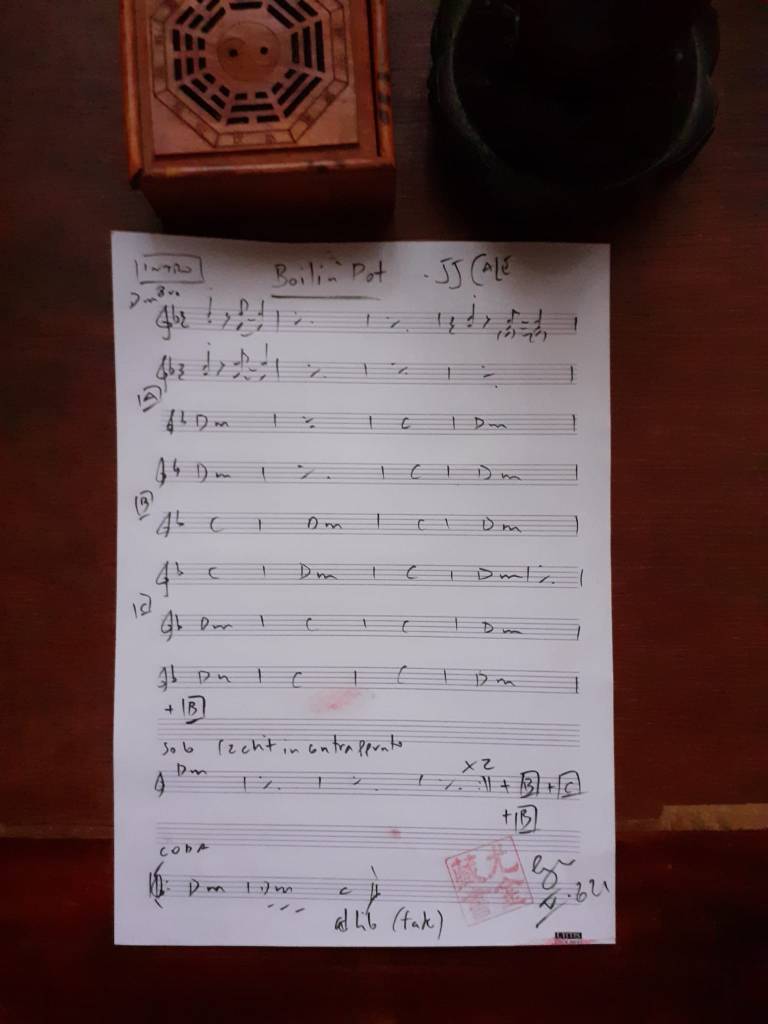 INTRO Boilin Pot JJ CALE
Dm
A
Dm C Dm
Dm C Dm
B
C Dm C Dm
C Dm C Dm
C
Dm C C Dm
Dm C C Dm
+ B
solo in contrappunto
Dm x2 + B + C
+ B
CODA
Dm Dm C
ad lib